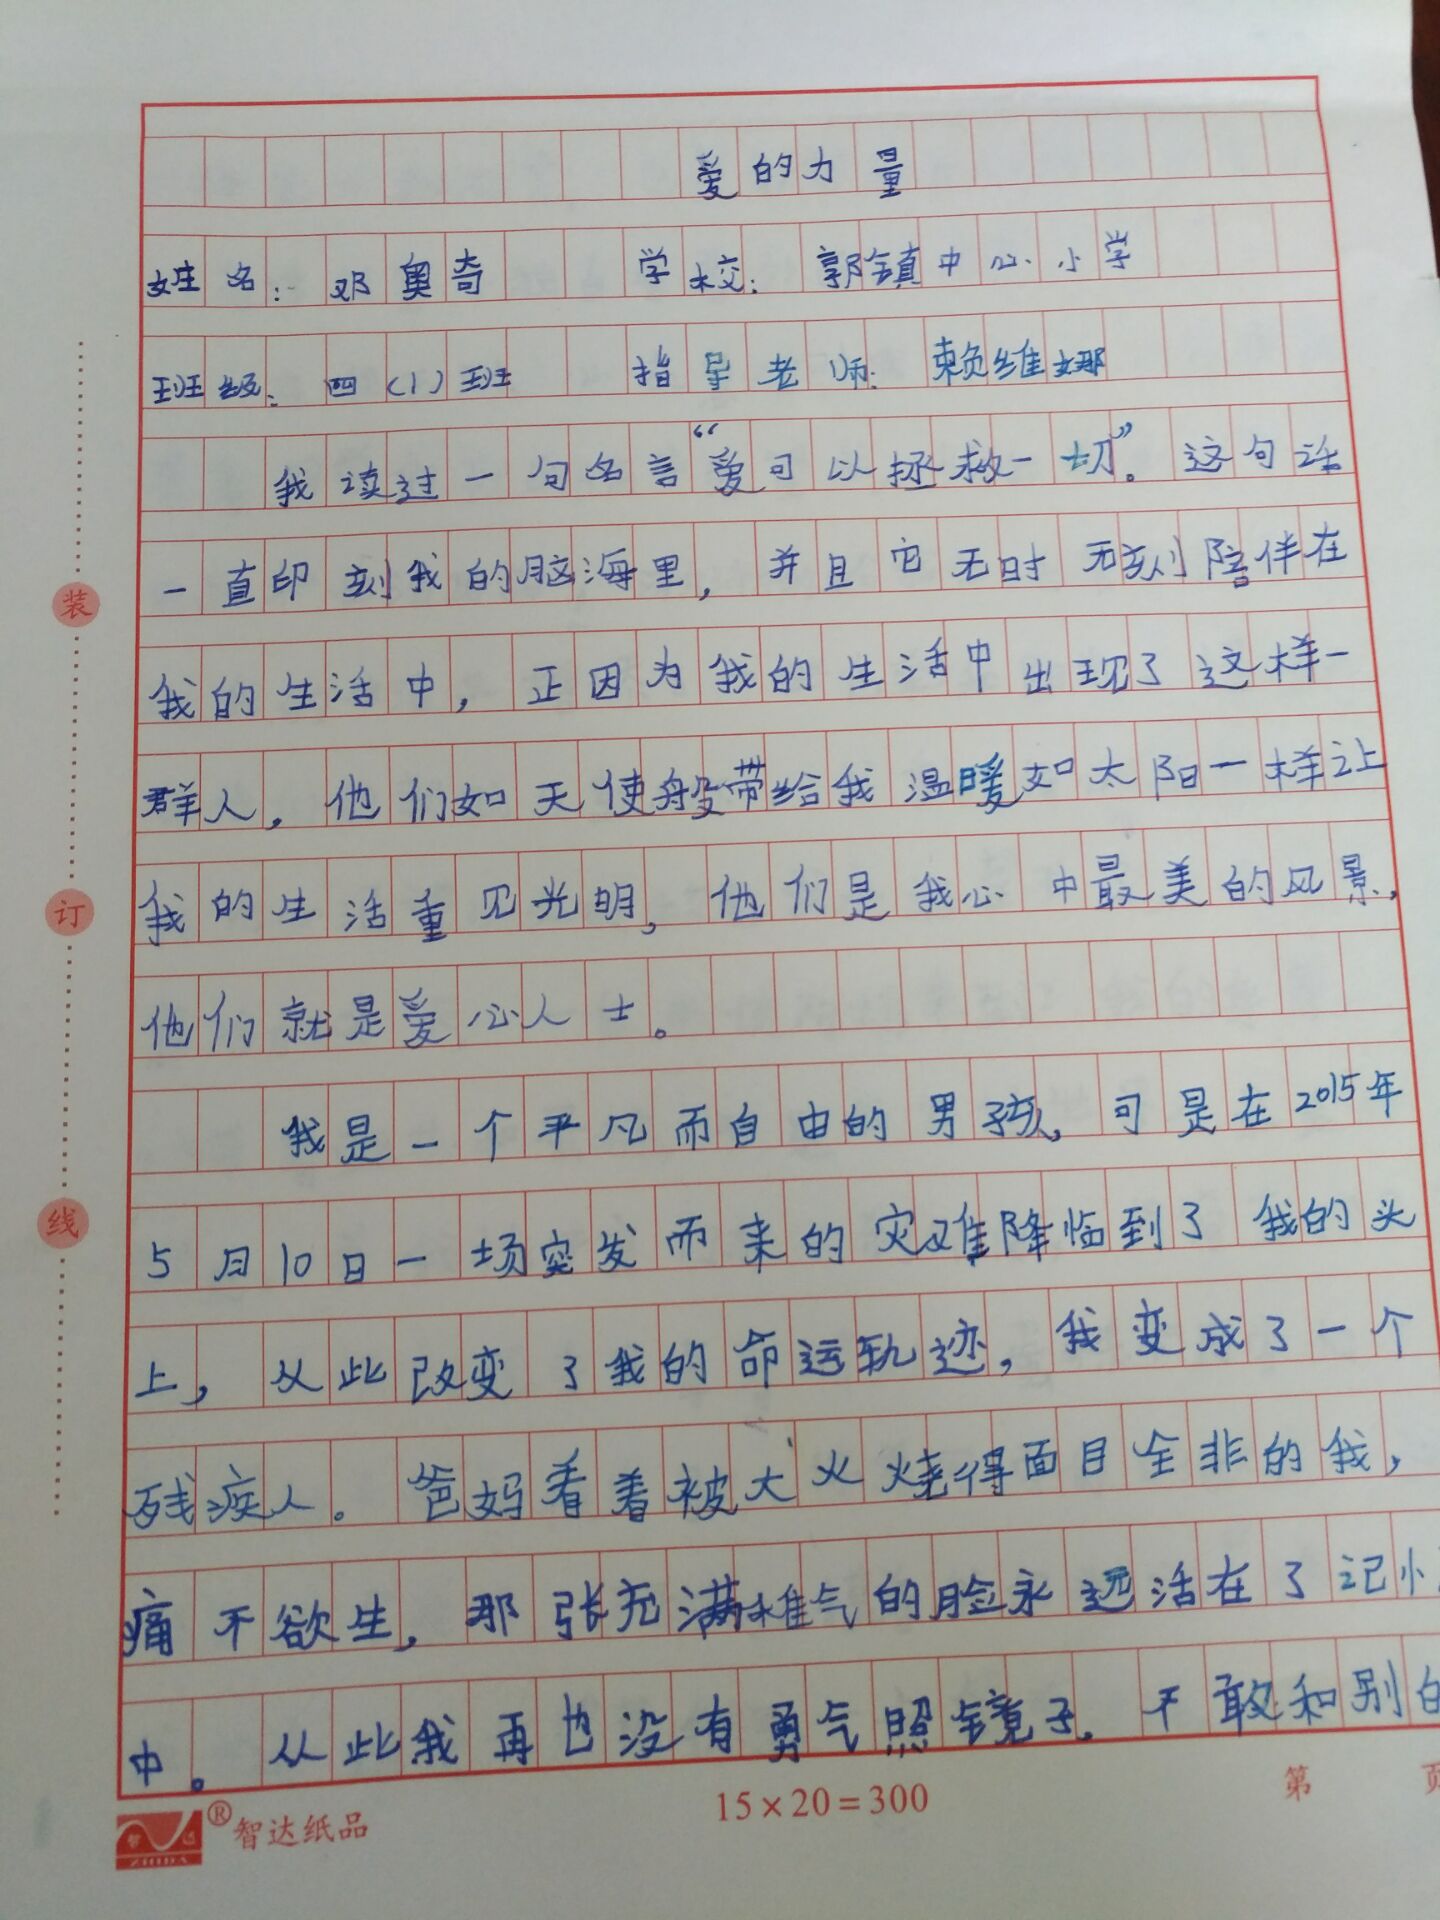 爱的力量
姓名：邓奥奇 学校：郭镇中心小学
班级：四（1）班 指导老师：赖维娜
我读过一句名言“爱可以拯救一切”。这句话
一直印刻我的脑海里，并且它无时无刻陪伴在
我的生活中，正因为我的生活中出现了这样一
群人，他们如天使般带给我温暖如太阳一样让
我的生活重见光明，他们是我心中最美的风景，
他们就是爱心人士。
我是一个平凡而自由的男孩，可是在2015年
5月10日一场突发而来的灾难降临到了我的头
上，从此改变了我的命运轨迹，我变成了一个
残疾人。爸妈看着被大火烧得面目全非的我，
痛不欲生，那张充满稚气的脸永远活在了记忆
中。从此我再也没有勇气照镜子，不敢和别的
装
订
线
智达 ZHIDA ®智达纸品
15×20=300
第 页